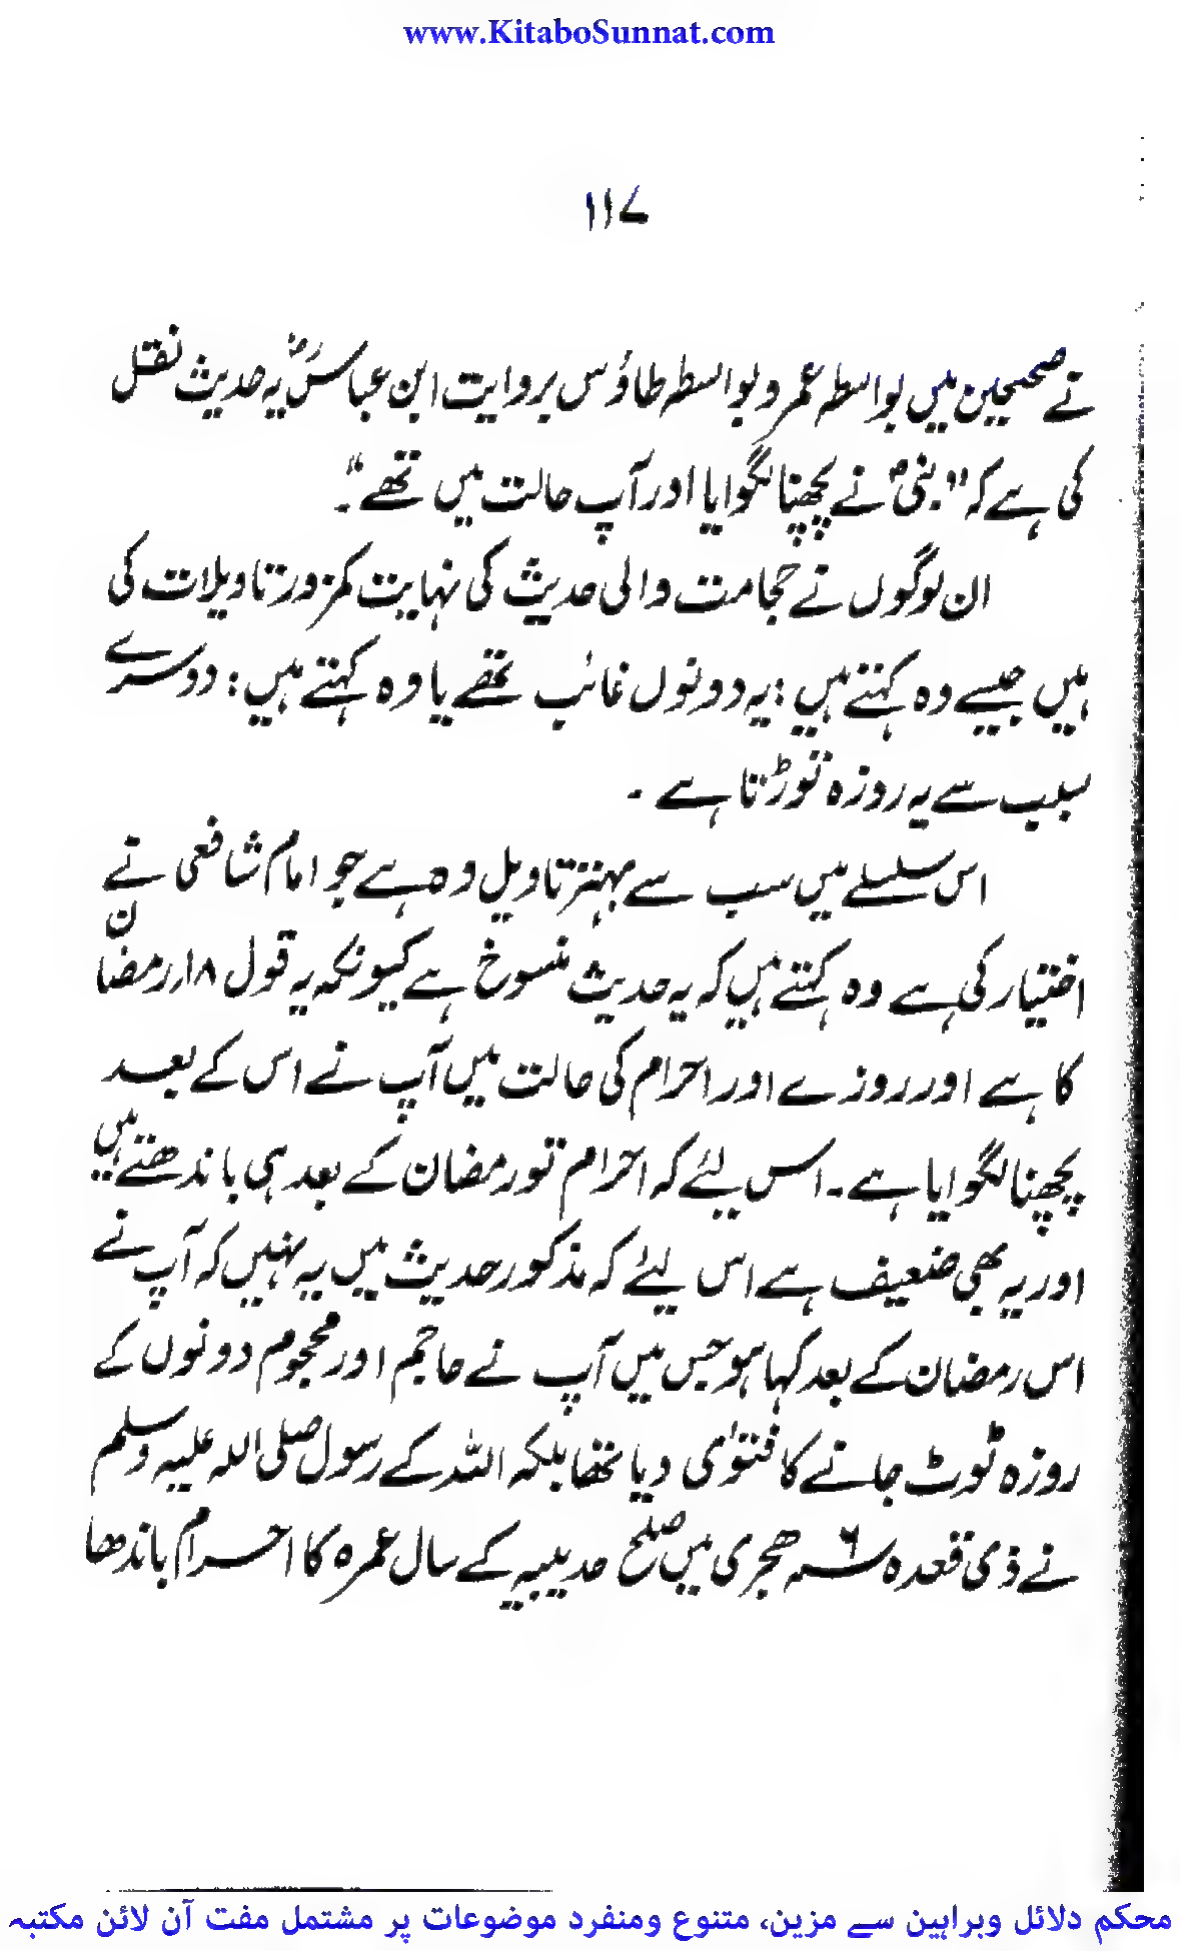 www.KitaboSunnat.com
۱۱۷
نے صحیحین میں بواسطہ عمر و بواسطہ طاؤس بروایت ابن عباسؓ یہ حدیث نقل
کی ہے کہ "نبیؐ نے پچھنا لگوایا اور آپ حالت میں تھے"۔
ان لوگوں نے حجامت والی حدیث کی نہایت کمزور تاویلات کی
ہیں جیسے وہ کہتے ہیں: یہ دونوں غائب تھے یا وہ کہتے ہیں: دوسرے
سبب سے یہ روزہ توڑتا ہے ۔
اس سلسلے میں سب سے بہتر تاویل وہ ہے جو امام شافعی نے
اختیار کی ہے وہ کہتے ہیں کہ یہ حدیث منسوخ ہے کیونکہ یہ قول ۱۸ر رمضان
کا ہے اور روزے اور احرام کی حالت میں آپ نے اس کے بعد
پچھنا لگوایا ہے۔ اس لئے کہ احرام تو رمضان کے بعد ہی باندھتے ہیں
اور یہ بھی ضعیف ہے اس لئے کہ مذکور حدیث میں یہ نہیں کہ آپ نے
اس رمضان کے بعد کہا ہو جس میں آپ نے حاجم اور محجوم دونوں کے
روزہ ٹوٹ جانے کا فتویٰ دیا تھا بلکہ اللہ کے رسول صلی اللہ علیہ وسلم
نے ذی قعدہ ۶؁ ھجری میں صلح حدیبیہ کے سال عمرہ کا احرام باندھا
محکم دلائل وبراہین سے مزین، متنوع ومنفرد موضوعات پر مشتمل مفت آن لائن مکتبہ